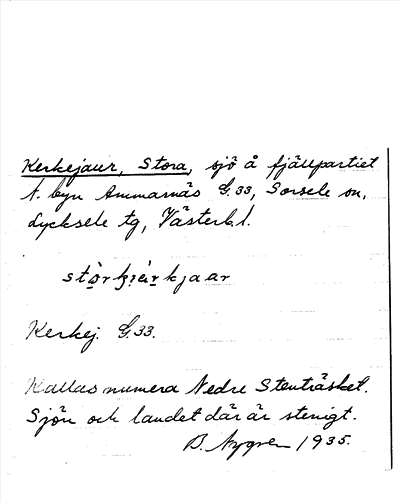 Kerkejaur, Stora, sjö å fjällpartiet
t. byn Ammarnäs G.33, Sorsele sn,
Lycksele tg, Västerb.l.
Kerkej. G.33.
Kallas numera Nedre Stenträsket.
Sjön och landet där är stenigt.
B. Nygren 1935.